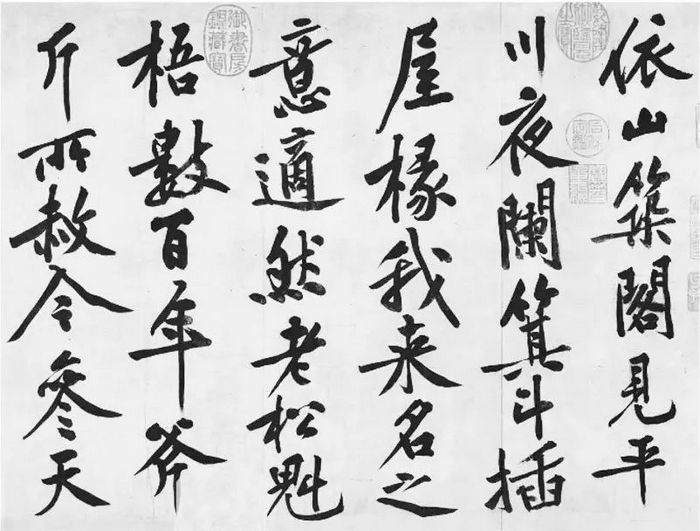 依山築閣見平
川夜闌箕斗插
屋椽我來名之
意適然老松魁
梧數百年斧
斤所赦今參天
御書房鑑藏寶